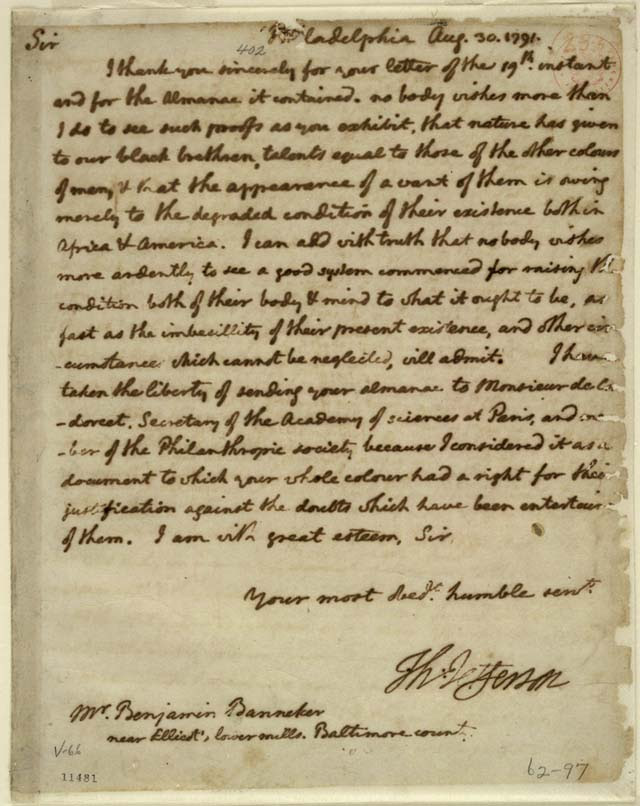 Sir
Philadelphia Aug. 30. 1791.
402
I thank you sincerely for your letter of the 19th. instant
and for the Almanac it contained. no body wishes more than
I do to see such proofs as you exhibit, that nature has given
to our black brethren, talents equal to those of the other colours
of men, & that the appearance of a want of them is owing
merely to the degraded condition of their existence both in
Africa & America. I can add with truth that no body wishes
more ardently to see a good system commenced for raising the
condition both of their body & mind to what it ought to be, as
fast as the imbecillity of their present existence, and other cir
-cumstance which cannot be neglected, will admit. I have
taken the liberty of sending your almanac to Monsieur de
-dorcet, Secretary of the Academy of sciences at Paris, and
-ber of the Philanthropic society because I considered it as a
document to which your whole colour had a right for their
justification against the doubts which have been entertain
of them. I am with great esteem, Sir
Your most obedt. humble servt.
Th. Jefferson
Mr. Benjamin Banneker
near Ellicot's, lower mills. Baltimore count.
V-66
11481
62-97